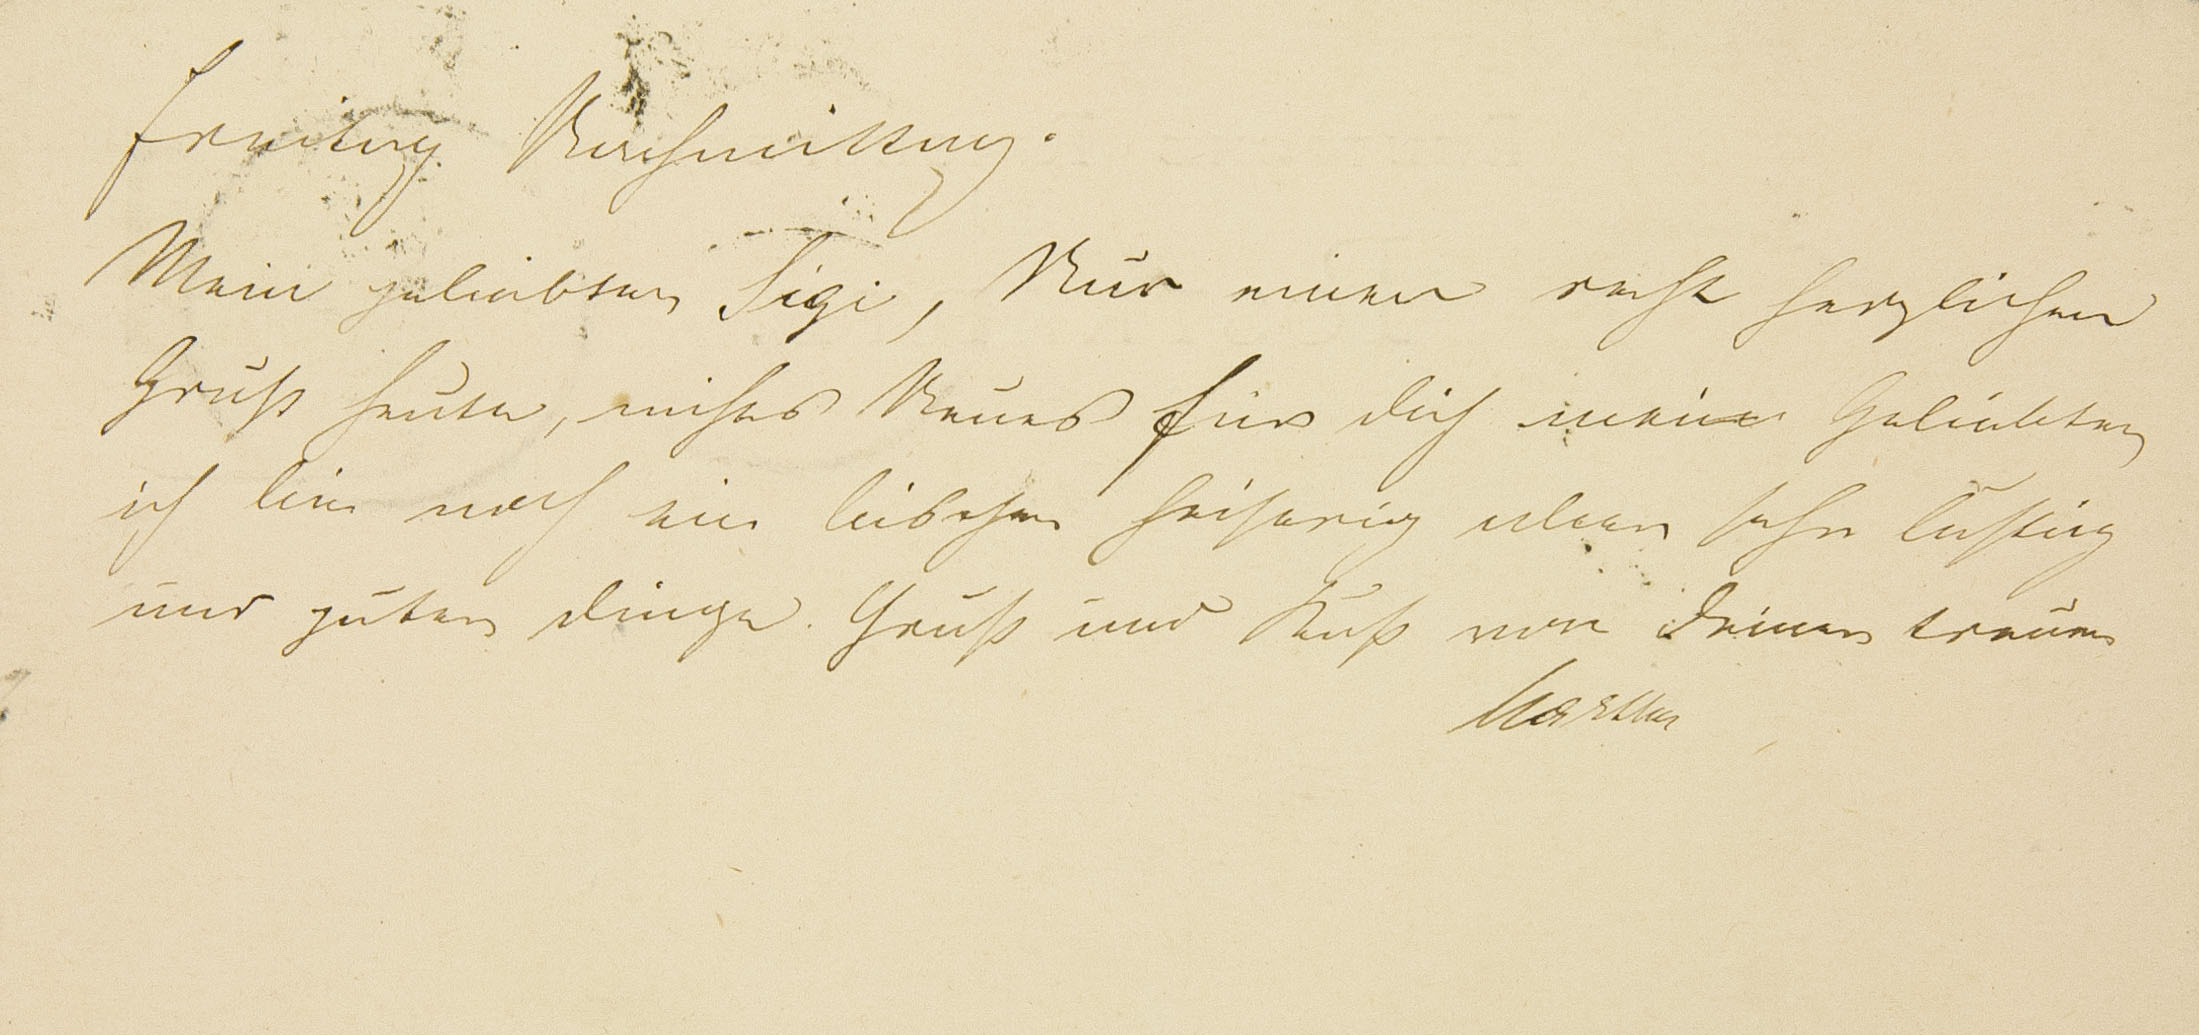 Freitag Nachmittag.
Mein geliebter Sigi, Nur einen recht herzlichen
Gruß heute, nichts Neues für dich mein Geliebter
ich bin noch ein bischen heiserig aber sehr lustig
und guter Dinge. Gruß und Kuß von Deiner treuen
Martha